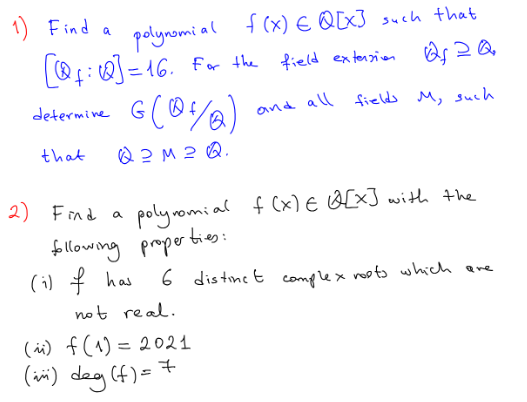 1) Find a polynomial f(x) ∈ Q[x] such that
[Q_f : Q] = 16. For the field extension Q_f ⊇ Q,
determine G(Q_f/Q) and all fields M, such
that Q ⊇ M ⊇ Q.
2) Find a polynomial f(x) ∈ Q[x] with the
following properties:
(i) f has 6 distinct complex roots which are
not real.
(ii) f(1) = 2021
(iii) deg(f) = 7